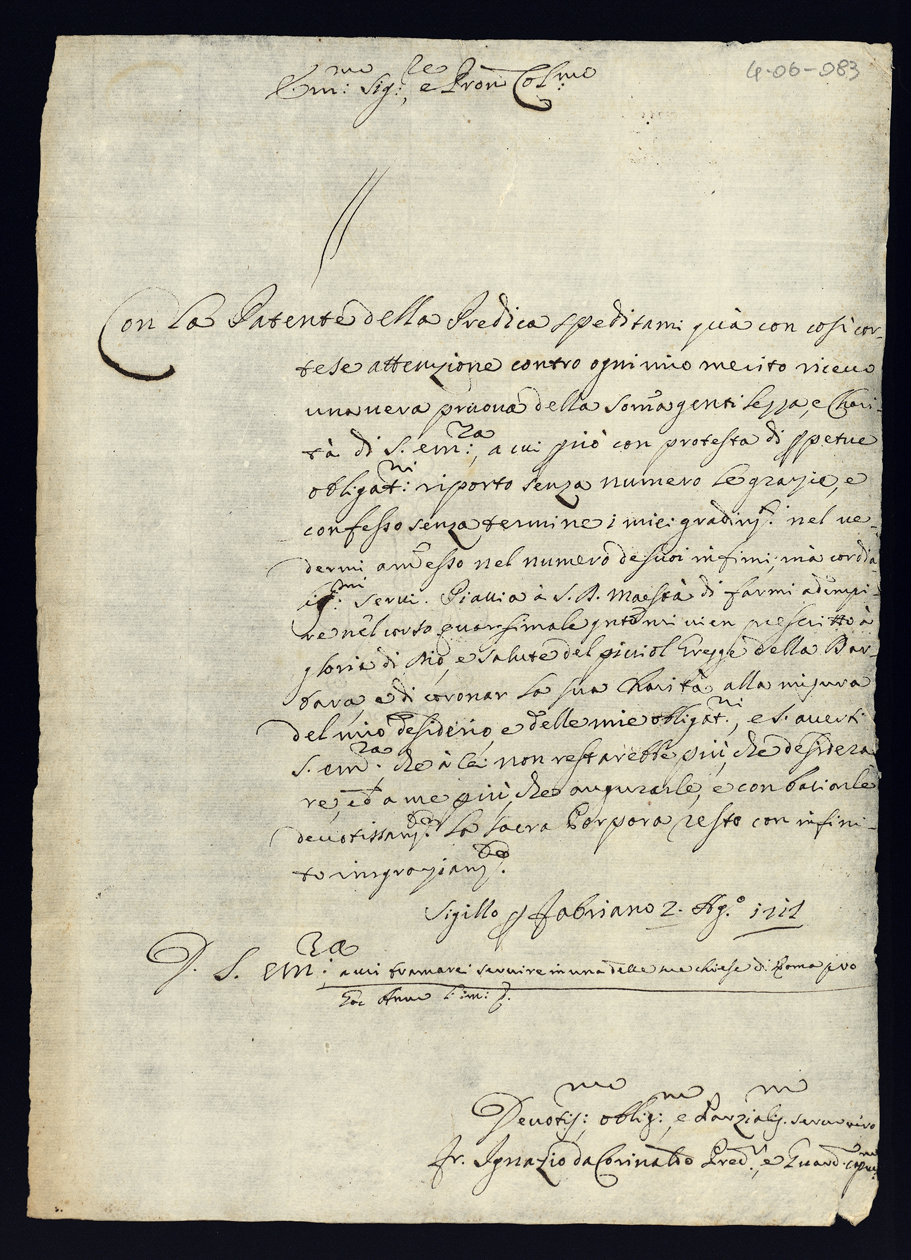 4-06-083
Em:mo Sig:re, e Pron Col:mo
Con la Patente della Predica speditami quà con così cor-
tese attenzione contro ogni mio merito ricevo
una vera pruova della soma gentilezza, e Chari-
tà di S. em:za, a cui però con protesta di perpetue
obligat:ni riporto senza numero le grazie, e
confesso senza termine i miei gradim:ti nel ve-
dermi amesso nel numero de suoi infimi, mà cordia-
liss:mi servi. Piaccia à S. D. Maestà di farmi adempi-
re nel corso quaresimale quto mi vien prescritto à
gloria di Dio, e salute del picciol Gregge della Bar-
bara, e di coronar la sua Charità alla misura
del mio desiderio, e delle mie obligat:ni, e s'averti
S. em:za, che à lei non restarebbe più, che desidera-
re, ed a me più, che augurarle, e con baciarle
devotissam:te la sacra Porpora resto con infini-
to ringraziam:to.
Sigillo p Fabriano 2. Ag:o 1711
D. S. em:za a cui bramarei servire in una delle sue chiese di Roma
Devotiss:mo, oblig:mo, e Parzialiss:mo servo vero
Fr. Ignazio da Corinaldo Pred:r, e Guard. capuc:no